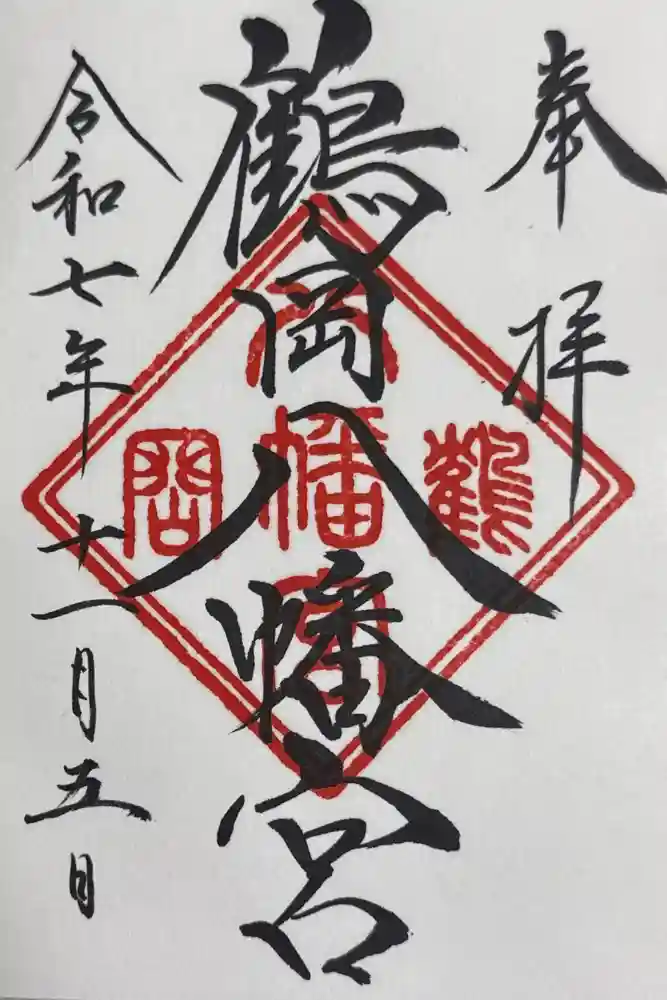 奉拝
鶴岡八幡宮
令和七年十一月五日
鶴
八幡宮
岡